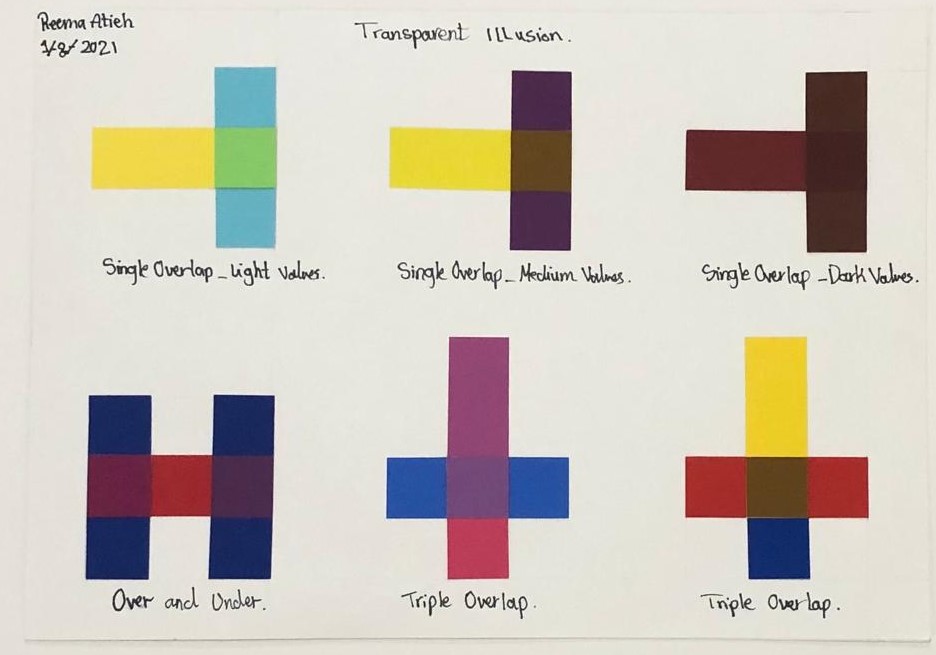 Reema Atieh
1/8/2021
Transparent ILLusion.
Single Overlap_Light Values.
Single Overlap_Medium Values.
Single Overlap_Dark Values.
Over and Under.
Triple Overlap.
Triple Overlap.